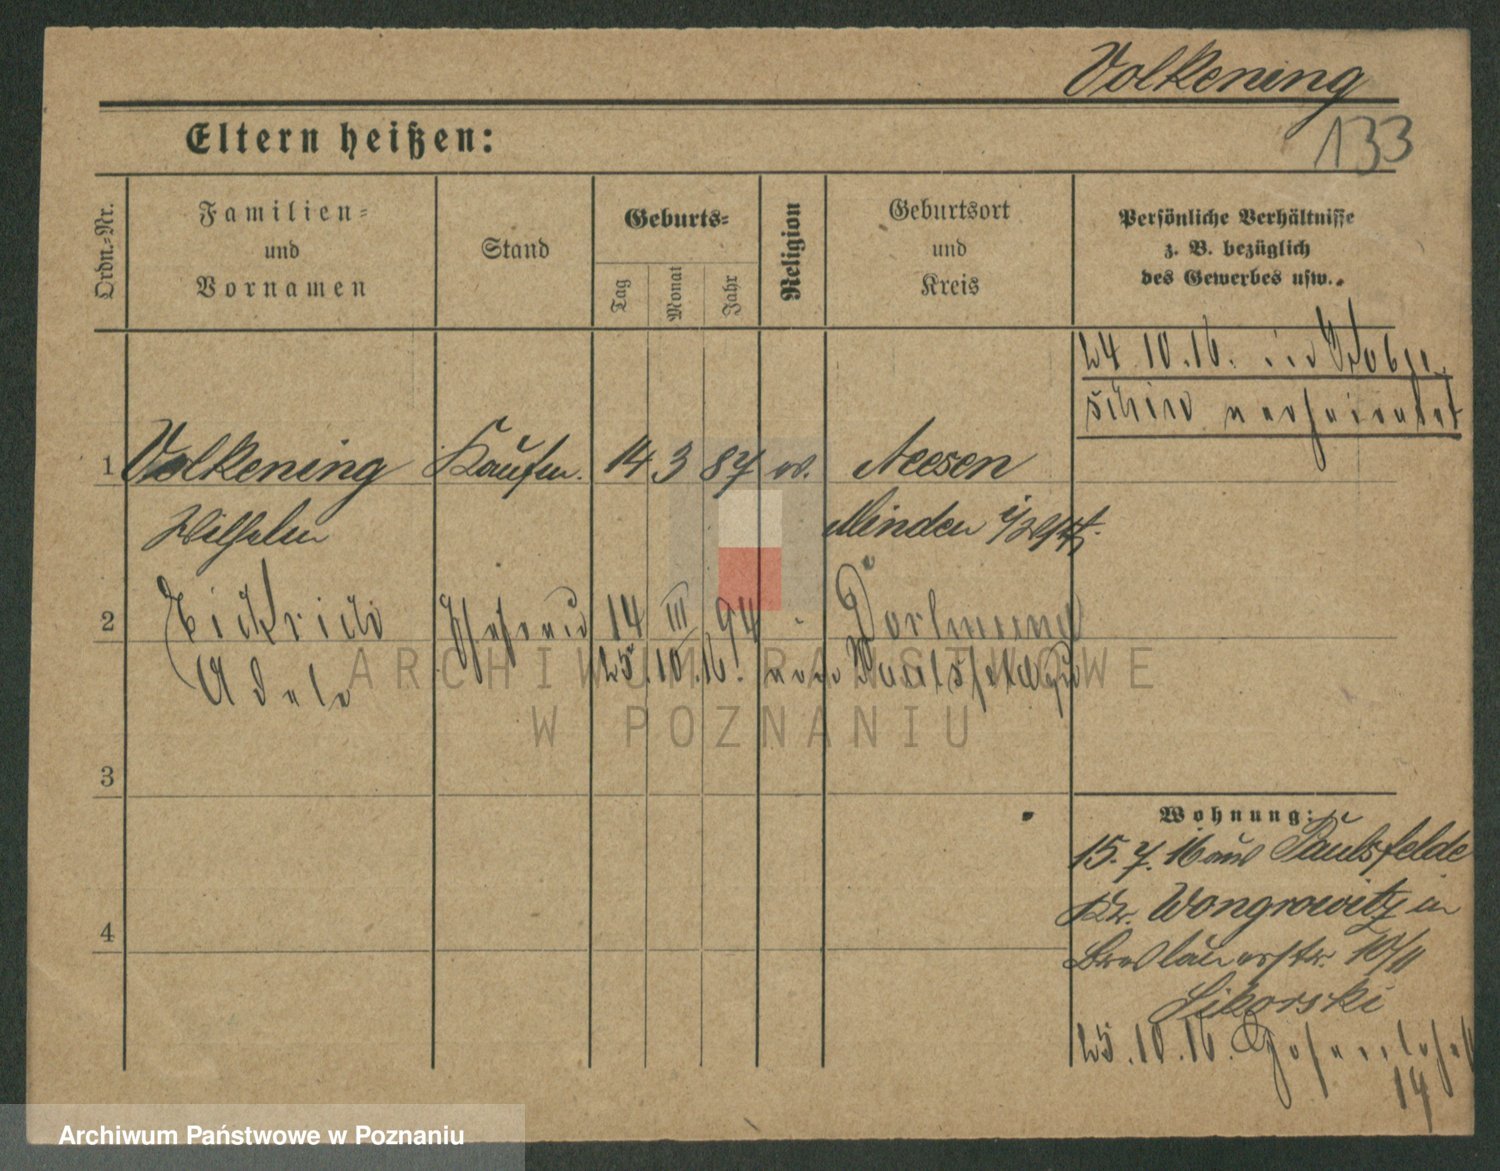 Volkening
133
Eltern heißen:
Ordn.-Nr.
Familien-
und
Vornamen
Stand
Geburts-
Tag
Monat
Jahr
Religion
Geburtsort
und
Kreis
Persönliche Verhältnisse
z. B. bezüglich
des Gewerbes usw.
24 10.16. in
verheiratet
1 Volkening Kaufm. 14 3 87 ev. Neesen
Wilhelm Minden i/Westf.
2 Ehefrau 14 III 94 Dortmund
Adele 25. 10. 16. von Paulsfelde
3
4
Wohnung:
15. 7. 16 aus Paulsfelde
Kr. Wongrowitz in
Breslauerstr. 10/II
Sikorski
25. 10. 16.
14
ARCHIWUM PAŃSTWOWE
W POZNANIU
Archiwum Państwowe w Poznaniu